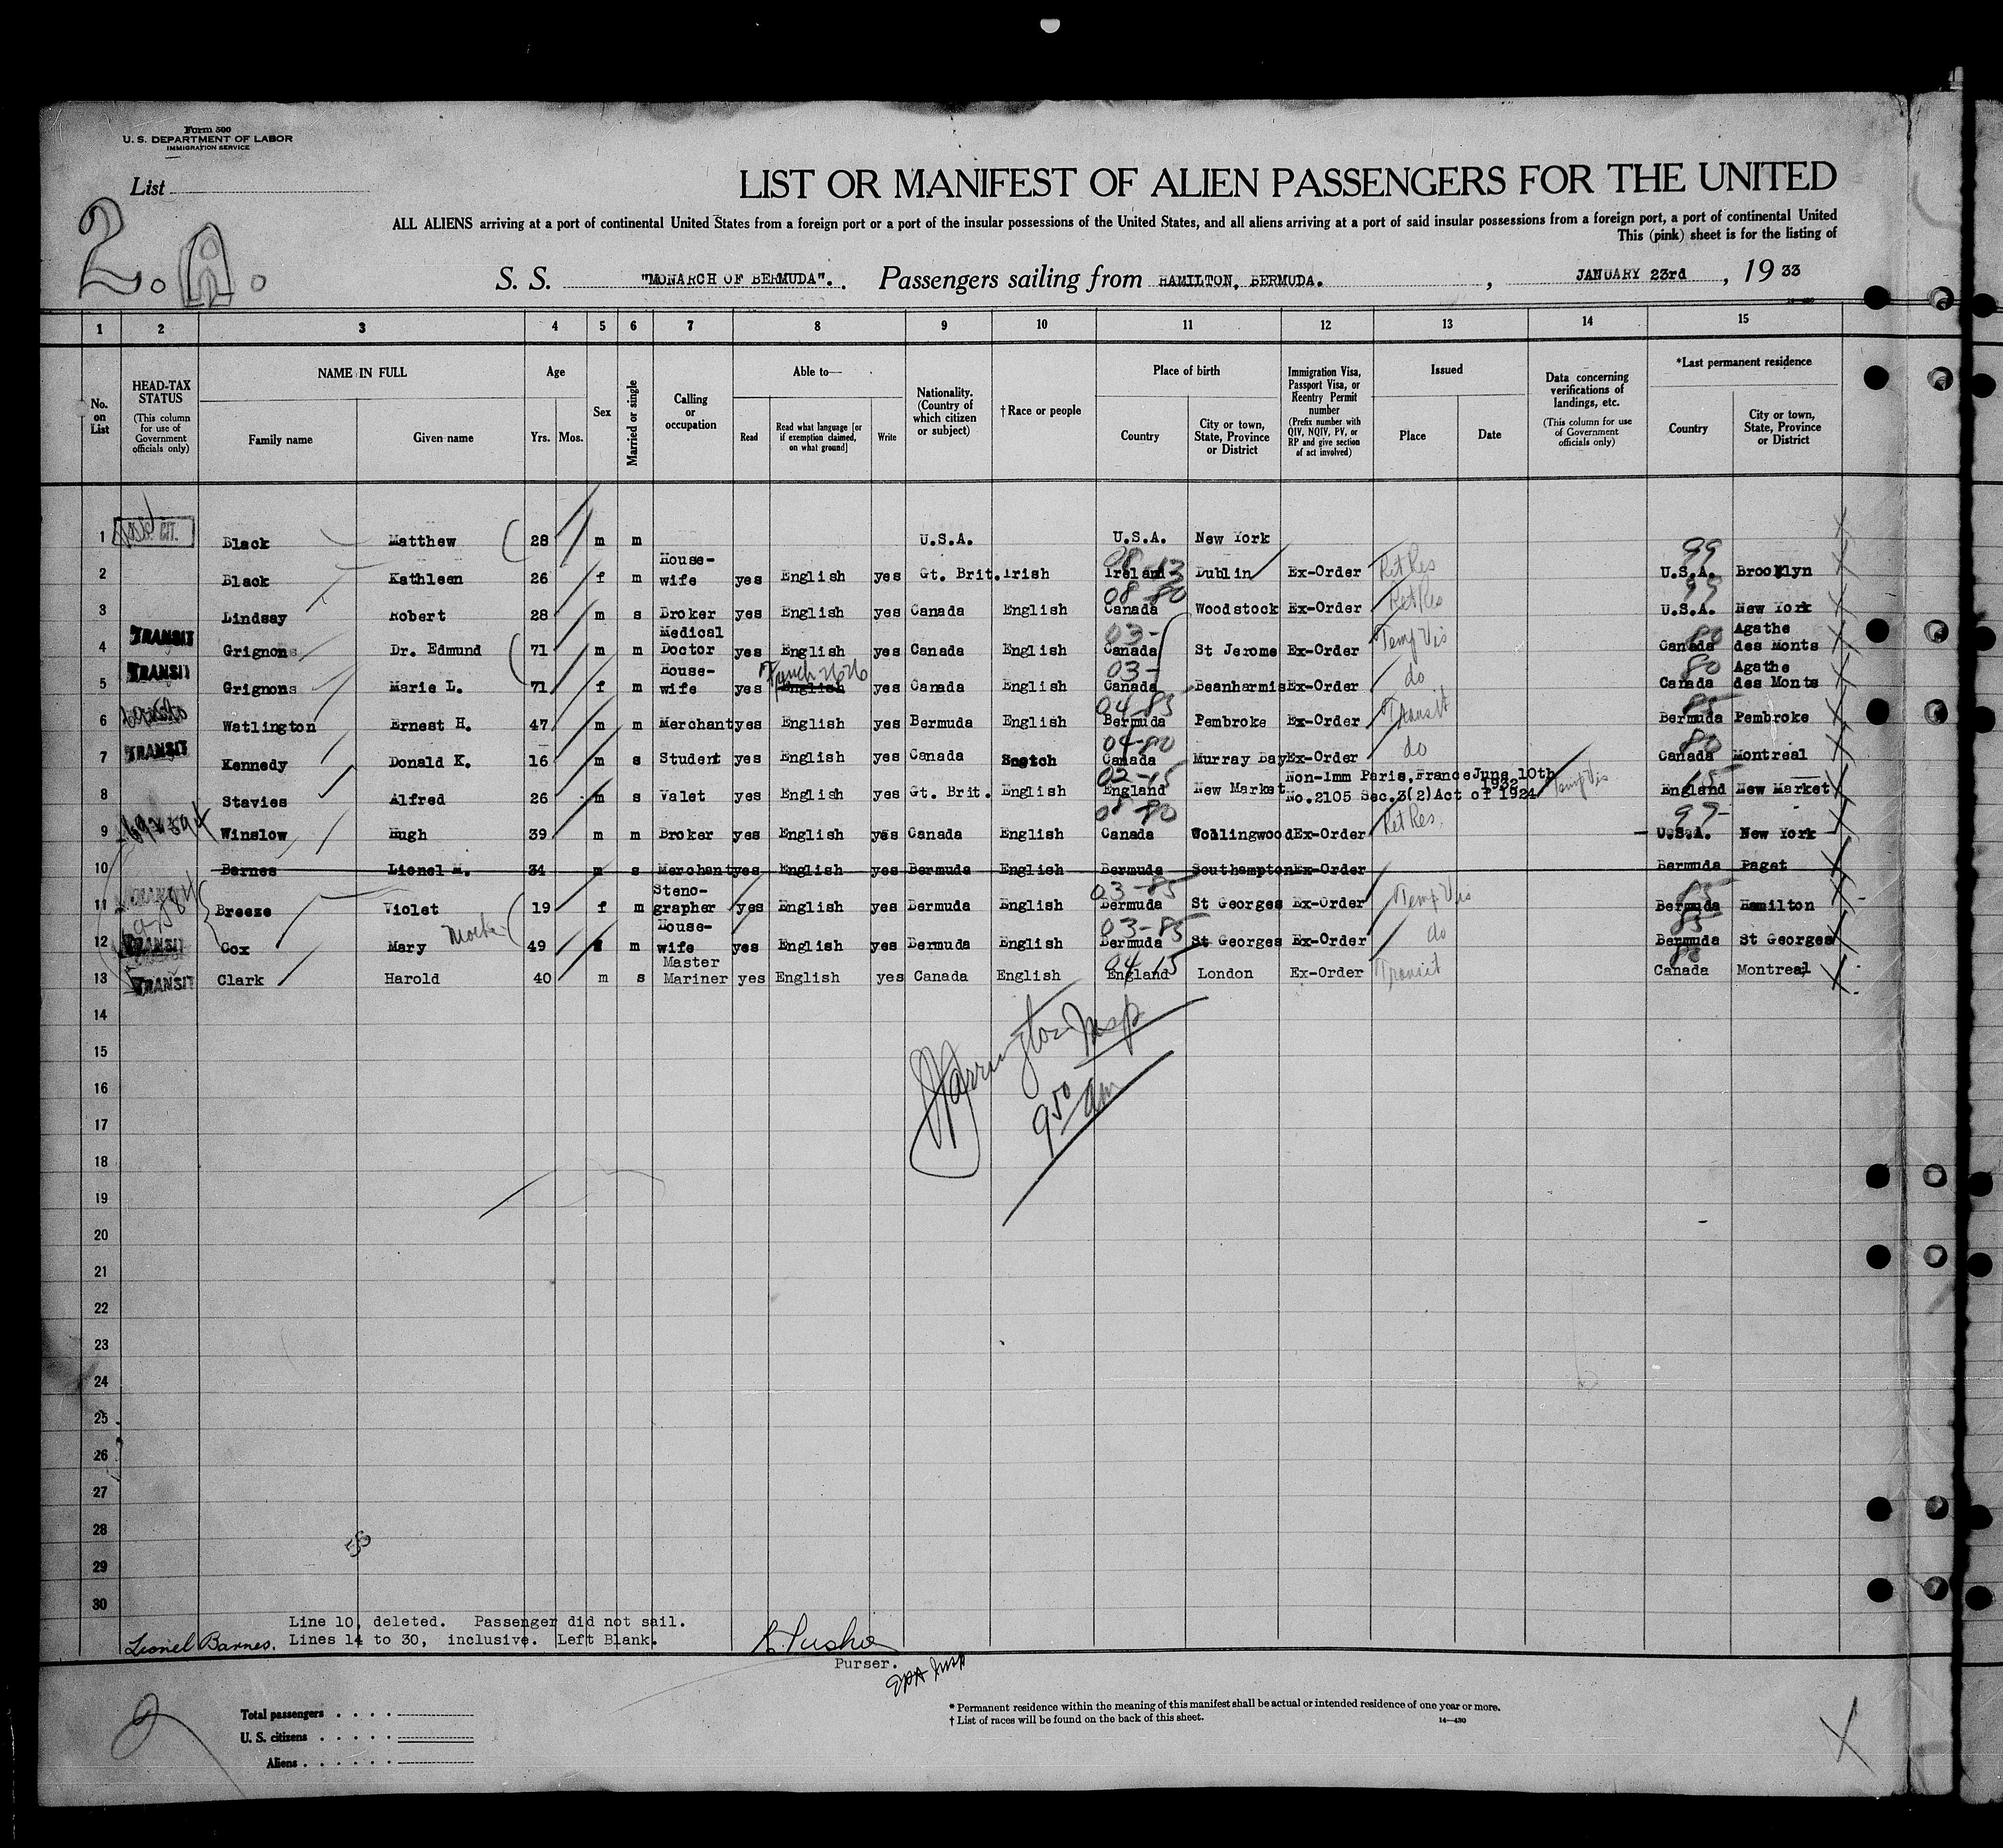 Form 500
U. S. DEPARTMENT OF LABOR
IMMIGRATION SERVICE
List
2.
LIST OR MANIFEST OF ALIEN PASSENGERS FOR THE UNITED
ALL ALIENS arriving at a port of continental United States from a foreign port or a port of the insular possessions of the United States, and all aliens arriving at a port of said insular possessions from a foreign port, a port of continental United
This (pink) sheet is for the listing of
S. S. "MONARCH OF BERMUDA". Passengers sailing from HAMILTON, BERMUDA. , JANUARY 23rd , 19 33
1 2 3 4 5 6 7 8 9 10 11 12 13 14 15
No. on List
HEAD-TAX STATUS (This column for use of Government officials only)
NAME IN FULL Family name Given name
Age Yrs. Mos.
Sex
Married or single
Calling or occupation
Able to— Read Read what language [or if exemption claimed, on what ground] Write
Nationality. (Country of which citizen or subject)
† Race or people
Place of birth Country City or town, State, Province or District
Immigration Visa, Passport Visa, or Reentry Permit number (Prefix number with QIV, NQIV, PV, or RP and give section of act involved)
Issued Place Date
Data concerning verifications of landings, etc. (This column for use of Government officials only)
*Last permanent residence Country City or town, State, Province or District
1 CIT. Black Matthew 28 m m U.S.A. U.S.A. New York
2 Black Kathleen 26 f m House-wife yes English yes Gt. Brit. Irish Ireland Dublin Ex-Order Ret Res 99 U.S.A. Brooklyn
3 Lindsay Robert 28 m s Broker yes English yes Canada English 08-80 Canada Woodstock Ex-Order Ret Res 99 U.S.A. New York
4 TRANSIT Grignons Dr. Edmund 71 m m Medical Doctor yes English yes Canada English 03- Canada St Jerome Ex-Order Temp Vis 80 Canada Agathe des Monts
5 TRANSIT Grignons Marie L. 71 f m House-wife yes French English yes Canada English 03- Canada Beanharmis Ex-Order do 80 Canada Agathe des Monts
6 Watlington Ernest H. 47 m m Merchant yes English yes Bermuda English 04-85 Bermuda Pembroke Ex-Order Transit 85 Bermuda Pembroke
7 TRANSIT Kennedy Donald K. 16 m s Student yes English yes Canada Scotch 04-80 Canada Murray Bay Ex-Order do 80 Canada Montreal
8 Stavies Alfred 26 m s Valet yes English yes Gt. Brit. English 03-15 England New Market Non-Imm Paris, France June 10th 1932 No.2105 Sec.3(2)Act of 1924 Temp Vis 15 England New Market
9 Winslow Hugh 39 m m Broker yes English yes Canada English 08-80 Canada Collingwood Ex-Order Ret Res. 99- U.S.A. New York
10 Barnes Lionel M. 34 m s Merchant yes English yes Bermuda English Bermuda Southampton Ex-Order Bermuda Paget
11 Breeze Violet 19 f m Steno-grapher yes English yes Bermuda English 03-85 Bermuda St Georges Ex-Order Temp Vis 85 Bermuda Hamilton
12 TRANSIT Cox Mary Mother 49 f m House-wife yes English yes Bermuda English 03-85 Bermuda St Georges Ex-Order do 85 Bermuda St Georges
13 TRANSIT Clark Harold 40 m s Master Mariner yes English yes Canada English 04-15 England London Ex-Order Transit 80 Canada Montreal
14
15
16
17
18
19
20
21
22
23
24
25
26
27
28
29
30
Harrington Insp
9 50 am
Line 10, deleted. Passenger did not sail.
Lionel Barnes. Lines 14 to 30, inclusive. Left Blank.
Purser.
Total passengers
U. S. citizens
Aliens
* Permanent residence within the meaning of this manifest shall be actual or intended residence of one year or more.
† List of races will be found on the back of this sheet.
14—430